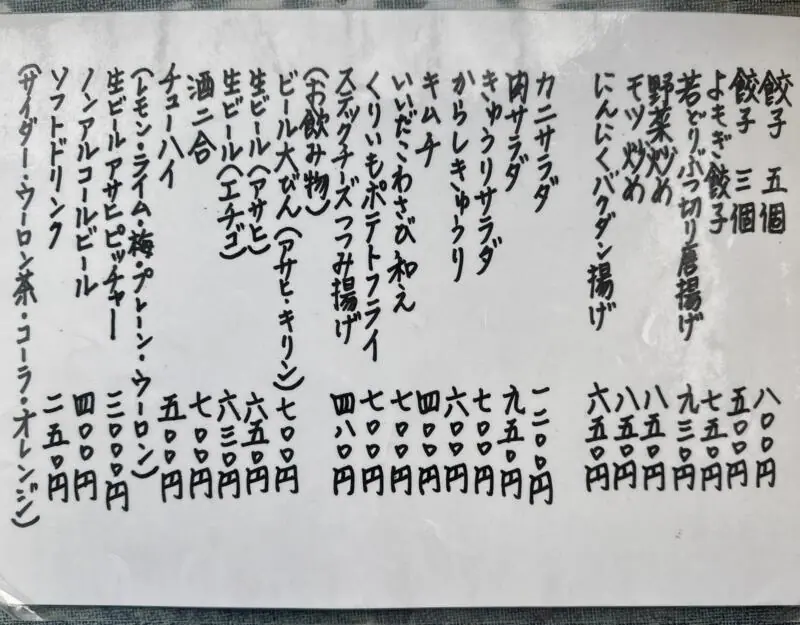 餃子 五個 八〇〇円
餃子 三個 五〇〇円
よもぎ餃子 七五〇円
若どりぶつ切り唐揚げ 九三〇円
野菜炒め 八五〇円
モツ炒め 八五〇円
にんにくバクダン揚げ 六五〇円
カニサラダ 一二〇〇円
肉サラダ 九五〇円
きゅうりサラダ 七〇〇円
からしきゅうり 六〇〇円
キムチ 四〇〇円
いいだこわさび和え 七〇〇円
くりいもポテトフライ 七〇〇円
スティックチーズつつみ揚げ 四八〇円
(お飲み物)
ビール大びん(アサヒ・キリン) 七〇〇円
生ビール(アサヒ) 六五〇円
生ビール(エチゴ) 六三〇円
酒二合 七〇〇円
チューハイ 五〇〇円
(レモン・ライム・梅・プレーン・ウーロン)
生ビールアサヒピッチャー 二〇〇〇円
ノンアルコールビール 四〇〇円
ソフトドリンク 二五〇円
(サイダー・ウーロン茶・コーラ・オレンジ)